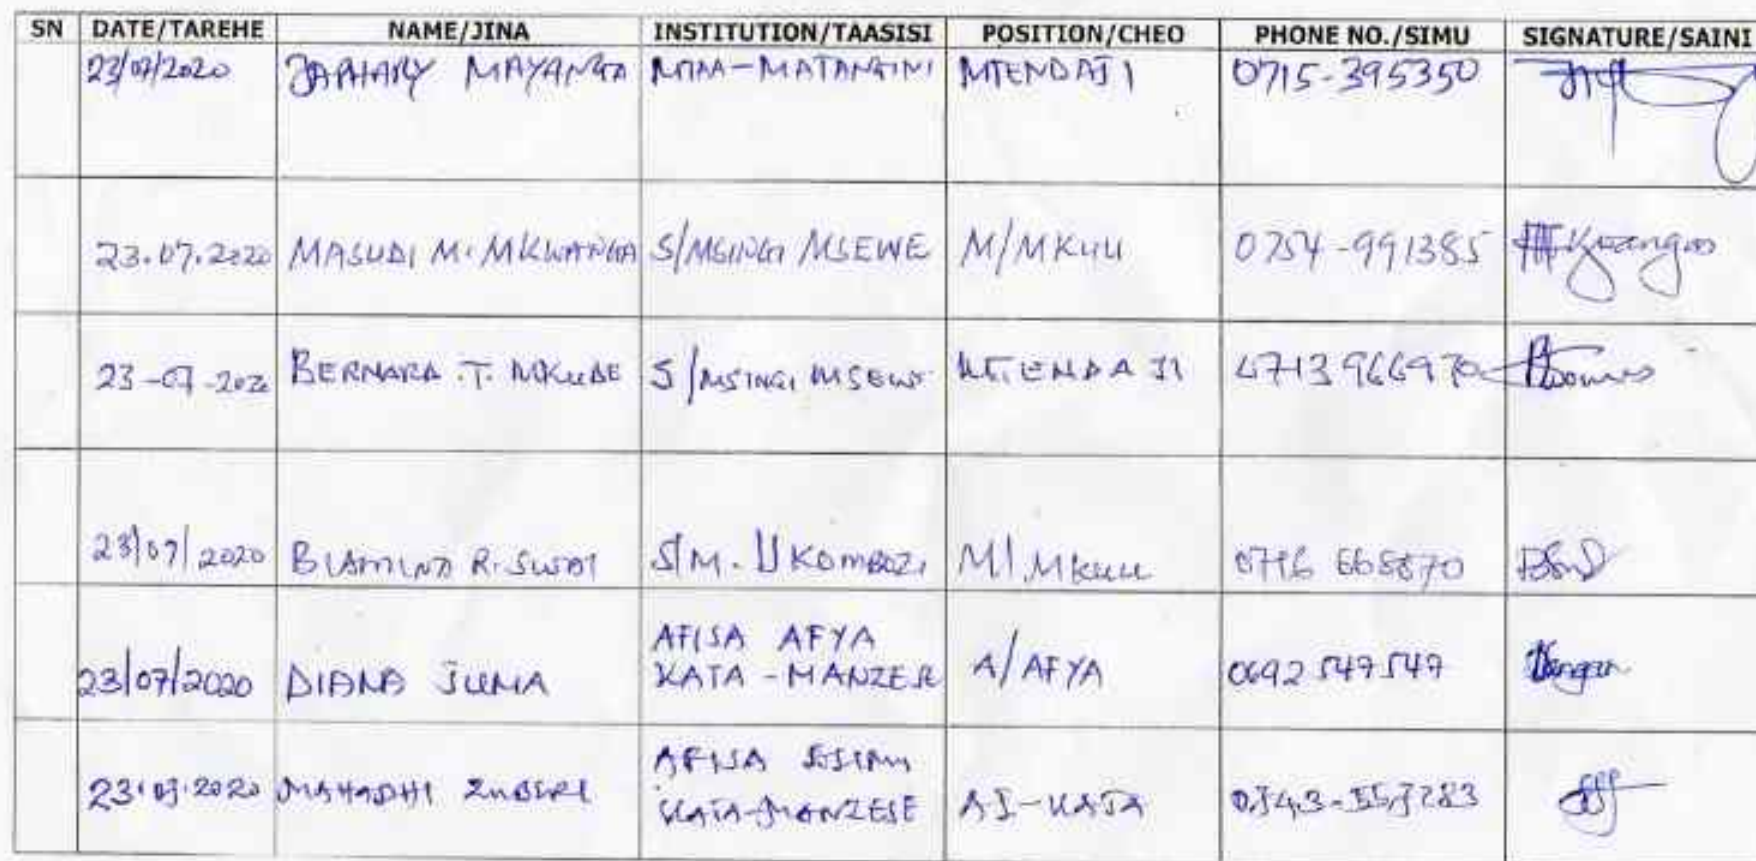 SN DATE/TAREHE NAME/JINA INSTITUTION/TAASISI POSITION/CHEO PHONE NO./SIMU SIGNATURE/SAINI
23/07/2020 JAPHARY MAYANGA MTAA-MATANGINI MTENDAJI 0715-395350
23.07.2020 MASUDI M. MKWANGA S/MSINGI MSEWE M/MKUU 0754-991385
23-07-2020 BERNARA .T. MKUDE S/MSINGI MSEWE MTENDAJI
23/07/2020 R. SWAI S/M. UKOMBOZI M/.MKUU
AFISA AFYA
23/07/2020 DIANA JUMA KATA-MANZESE A/AFYA 0692 547547
AFISA
23.07.2020 MAHADHI ZUBERI KATA-MANZESE